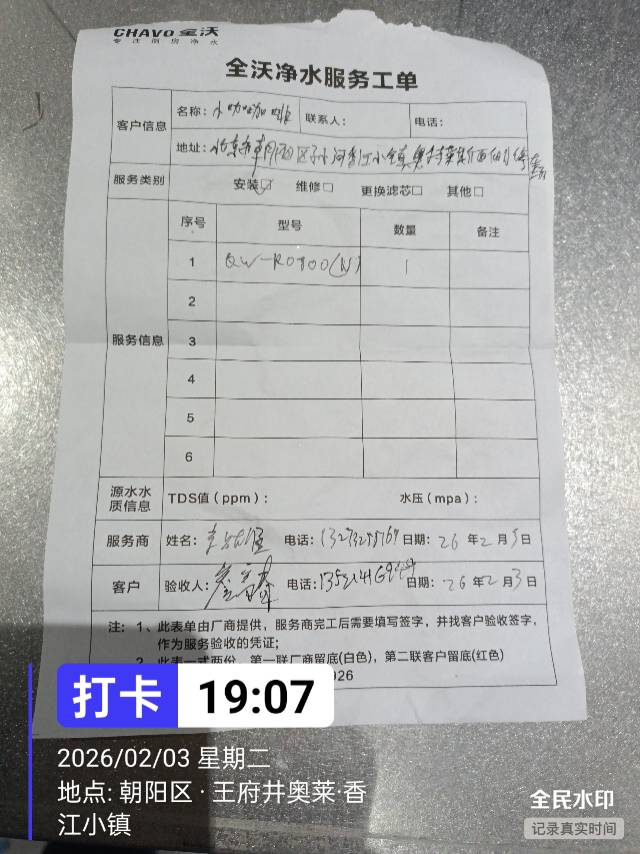 CHAVO 全沃
专注厨房净水
全沃净水服务工单
客户信息
名称: 小咖咖啡 联系人: 电话:
地址: 北京市朝阳区孙河香江小镇奥特莱斯
服务类别 安装☑ 维修□ 更换滤芯□ 其他□
服务信息
序号 型号 数量 备注
1 QW-RO800(N) 1
2
3
4
5
6
源水水质信息 TDS值（ppm）: 水压（mpa）:
服务商 姓名: 电话: 日期: 26 年 2 月 3 日
客户 验收人: 电话: 日期: 26 年 2 月 3 日
注: 1、此表单由厂商提供，服务商完工后需要填写签字，并找客户验收签字，
作为服务验收的凭证;
2、此表一式两份，第一联厂商留底(白色)，第二联客户留底(红色)
026
打卡 19:07
2026/02/03 星期二
地点: 朝阳区·王府井奥莱·香
江小镇
全民水印
记录真实时间